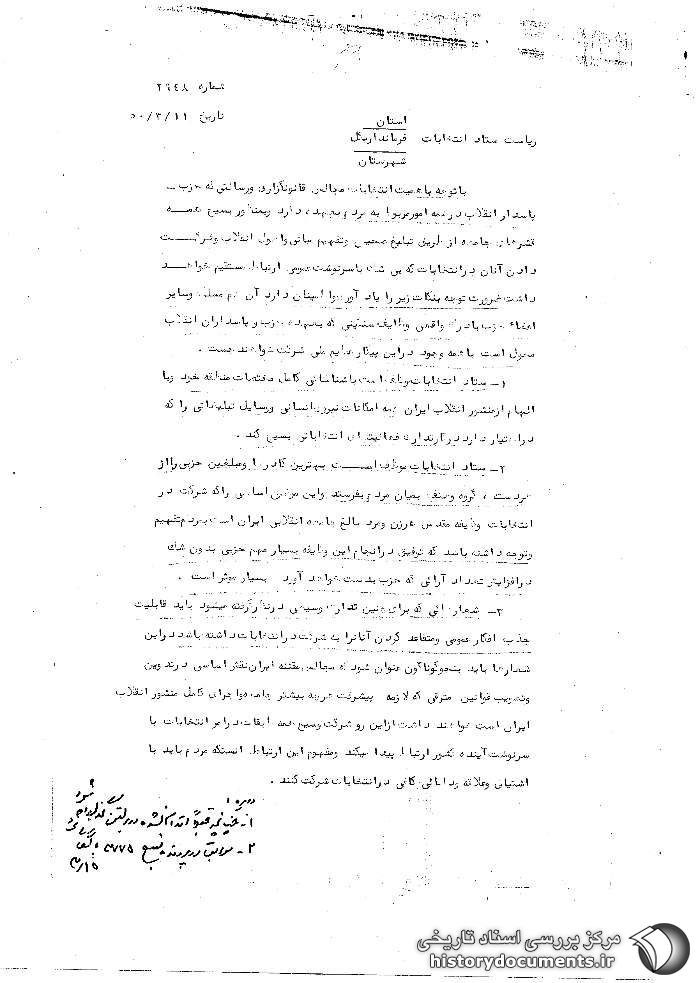 شماره ۲۹۴۸
تاریخ ۵۰/۳/۱۱
استان
ریاست ستاد انتخابات فرمانداریکل
شهرستان
باتوجه باهمیت انتخابات مجالس قانونگزاری ورسالتی که حزب ـ
پاسدار انقلاب در همه امور مربوط به مردم بعهده دارد وبمنظور بسیج همه
قشرهای جامعه از طریق تبلیغ صحیح وتفهیم مبانی واصول انقلاب وشرکت
دادن آنان در انتخابات که بی شک باسرنوشت عمومی ارتباط مستقیم خواهد
داشت ضرورت توجه بنکات زیر را یادآور واطمینان دارد آن مسئول وسایر
اعضاء حزب بادرک واقعی وظایف سنگینی که بعهده حزب و پاسداران انقلاب
محول است باهمه وجود در این پیکار عظیم ملی شرکت خواهند جست .
۱ـ ستاد انتخابات موظف است باشناسائی کامل مختصات منطقه خود وبا
الهام از منشور انقلاب ایران همه امکانات نیروی انسانی ووسایل تبلیغاتی را که
در اختیار دارد در کار تدارک فعالیت های انتخاباتی بسیج کند .
۲ـ ستاد انتخابات موظف است بهترین کادرها ومبلغین حزبی را از
هر دسته ، گروه وصنف بمیان مردم بفرستد واین موضوع اساسی را که شرکت در
انتخابات وظیفه مقدس هر زن ومرد بالغ جامعه انقلابی ایران است بمردم تفهیم
وتوجه داشته باشد که توفیق در انجام این وظیفه بسیار مهم حزبی بدون شک
در افزایش تعداد آرائی که حزب بدست خواهد آورد بسیار موثر است .
۳ـ شعارهائی که برای چنین تدارک وسیعی در نظر گرفته میشود باید قابلیت
جذب افکار عمومی ومتقاعد کردن آنانرا به شرکت در انتخابات داشته باشد در این
شعارها باید بنحو گوناگون عنوان شود که مجالس مقننه ایران نقش اساسی در تدوین
وتصویب قوانین مترقی که لازمه پیشرفت هرچه بیشتر جامعه واجرای کامل منشور انقلاب
ایران است خواهند داشت از این رو شرکت وسیع همه طبقات در امر انتخابات با
سرنوشت آینده کشور ارتباط پیدا میکند ومفهوم این ارتباط اینستکه مردم باید با
اشتیاق وعلاقه ودانائی کافی در انتخابات شرکت کنند .
۲ـ
۳/۱۵
مرکز بررسی اسناد تاریخی
historydocuments.ir